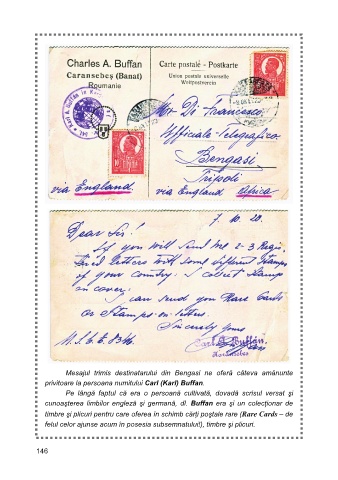 Charles A. Buffan
Caransebeș (Banat)
Roumanie
Carte postală - Postkarte
Union postale universelle
Weltpostverein
Mr. Dr. Francesco
Ufficiale-Telegrafico
Bengasi
Tripoli
via England
via England Africa
7. 10. 20.
Dear Sir!
If you will send me 2-3 Regis-
tered letters with some different stamps
of your country. I collect stamps
on cover.
I can send you Rare Cards
or Stamps on letters.
Sincerely yours
Mesajul trimis destinatarului din Bengasi ne oferă câteva amănunte
privitoare la persoana numitului Carl (Karl) Buffan.
Pe lângă faptul că era o persoană cultivată, dovadă scrisul versat și
cunoașterea limbilor engleză și germană, dl. Buffan era și un colecționar de
timbre și plicuri pentru care oferea în schimb cărți poștale rare (Rare Cards – de
felul celor ajunse acum în posesia subsemnatului!), timbre și plicuri.
146